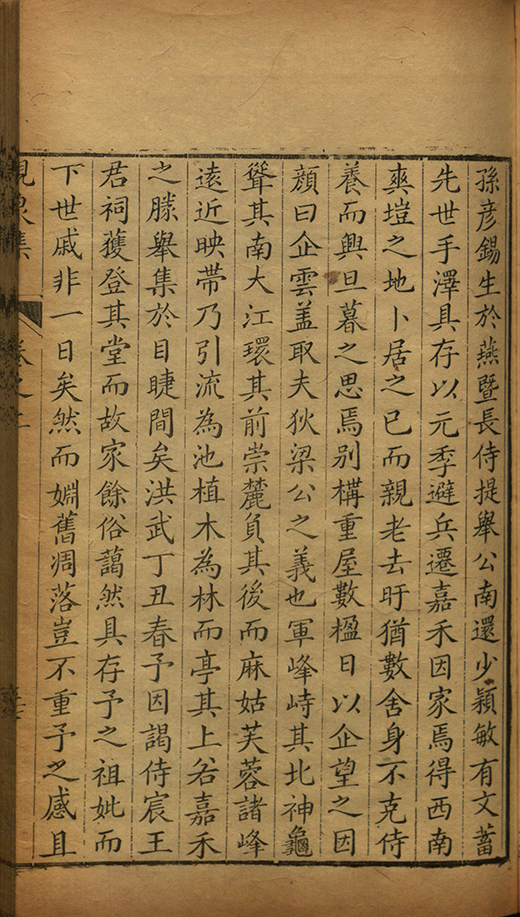 孫彦錫生於燕暨長侍提舉公南還少穎敏有文蓄
先世手澤具存以元季避兵遷嘉禾因家焉得西南
爽塏之地卜居之已而親老去旴猶數舍身不克侍
養而興旦暮之思焉别構重屋數楹日以企望之因
顔曰企雲盖取夫狄梁公之義也軍峰峙其北神龜
聳其南大江環其前崇麓負其後而麻姑芙蓉諸峰
逺近映帶乃引流為池植木為林而亭其上若嘉禾
之勝舉集於目睫間矣洪武丁丑春予因謁侍宸王
君祠獲登其堂而故家餘俗藹然具存予之祖妣而
下世戚非一日矣然而婣舊凋落豈不重予之感且
峴泉集 卷之二